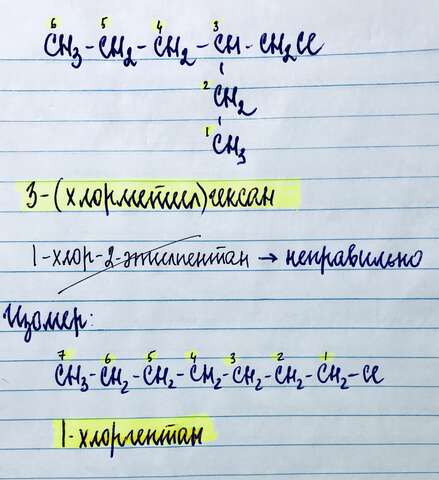 6 5 4 3
CH₃-CH₂-CH₂-CH-CH₂Cl
2 CH₂
1 CH₃
3-(хлорметил)гексан
1-хлор-2-этилпентан → неправильно
Изомер:
7 6 5 4 3 2 1
CH₃-CH₂-CH₂-CH₂-CH₂-CH₂-CH₂-Cl
1-хлоргептан